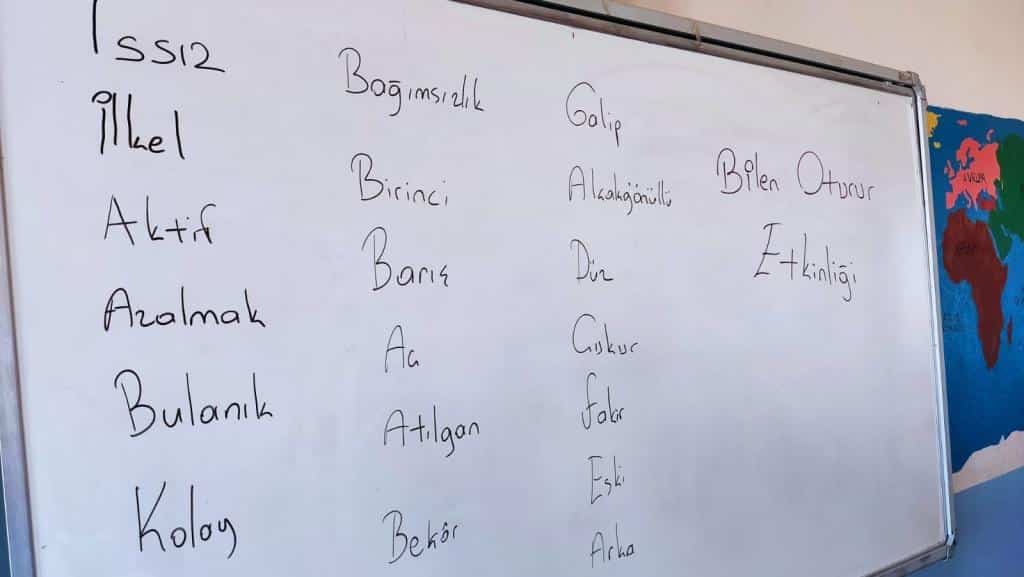 Issız
İlkel
Aktif
Azalmak
Bulanık
Kolay
Bağımsızlık
Birinci
Barış
Aç
Atılgan
Bekâr
Galip
Alçakgönüllü
Düz
Çukur
Fakir
Eski
Arka
Bilen Oturur
Etkinliği